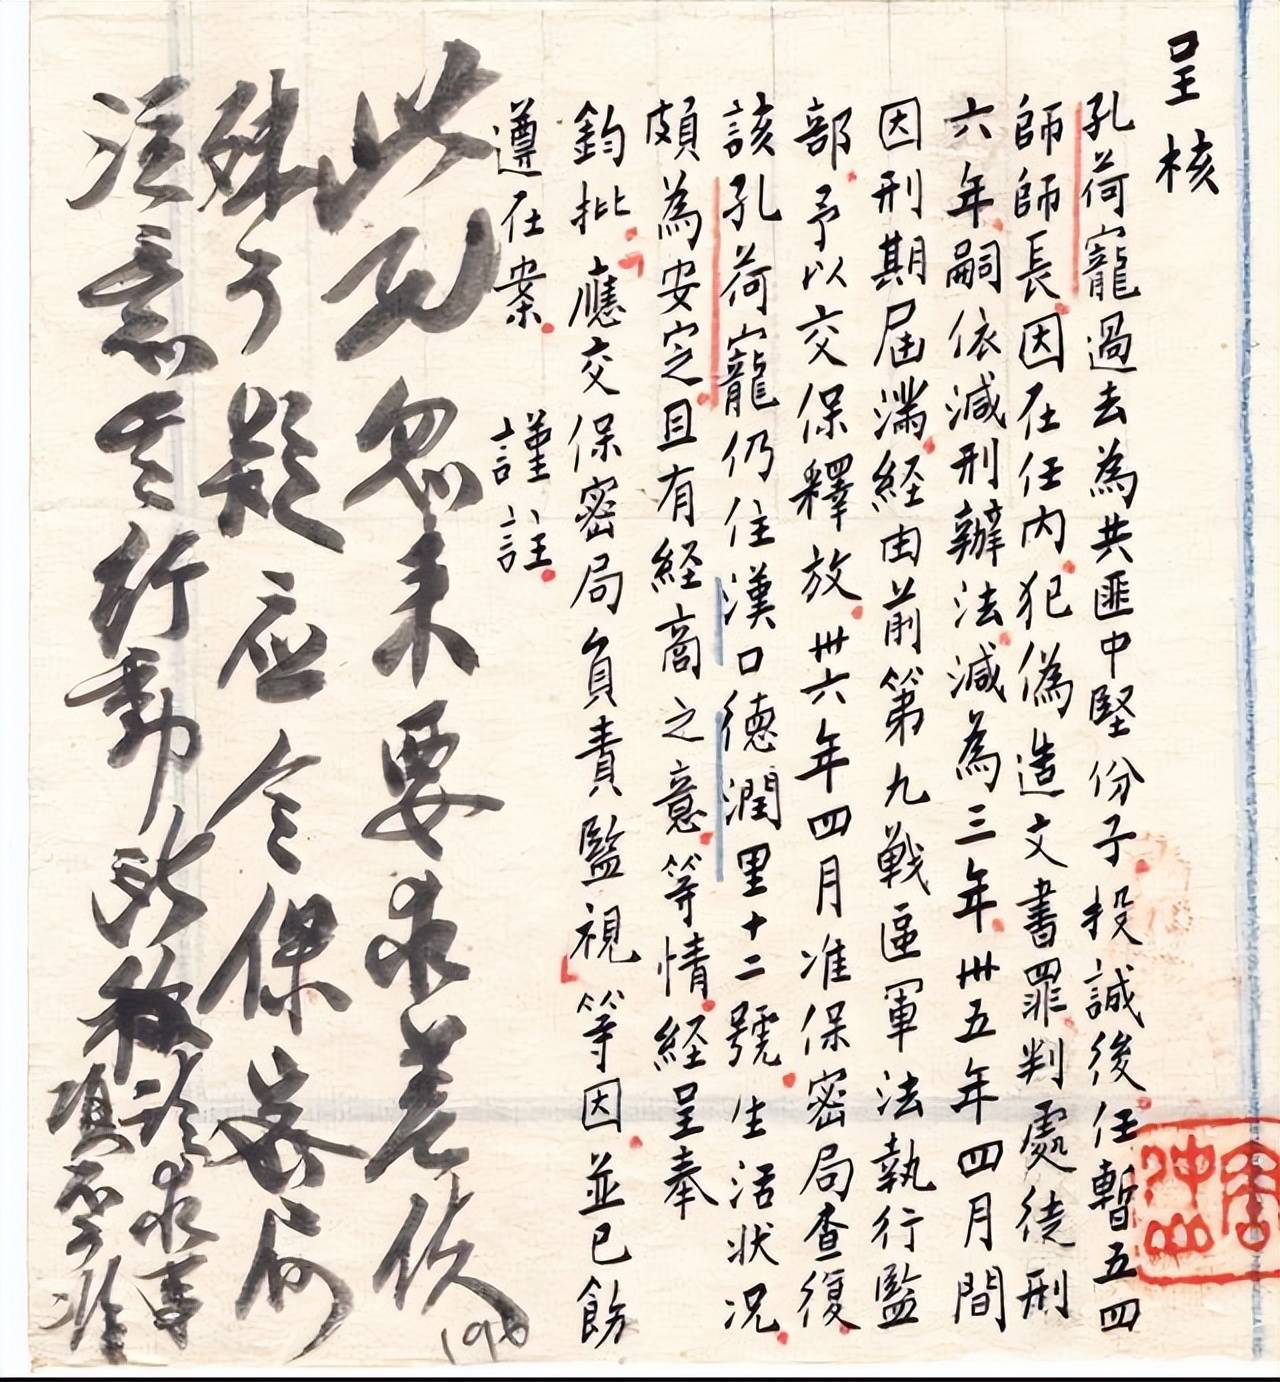 呈核
孔荷寵過去為共匪中堅份子投誠後任暫五四
師師長因在任內犯偽造文書罪判處徒刑
六年嗣依減刑辦法減為三年卅五年四月間
因刑期屆滿經由前第九戰區軍法執行監
部予以交保釋放卅六年四月准保密局查復
該孔荷寵仍住漢口德潤里十二號生活狀況
頗為安定且有經商之意等情經呈奉
鈞批應交保密局負責監視等因並已飭
遵在案 謹註
此死忽来要求差使
殊可疑应令保密局
注意其行動